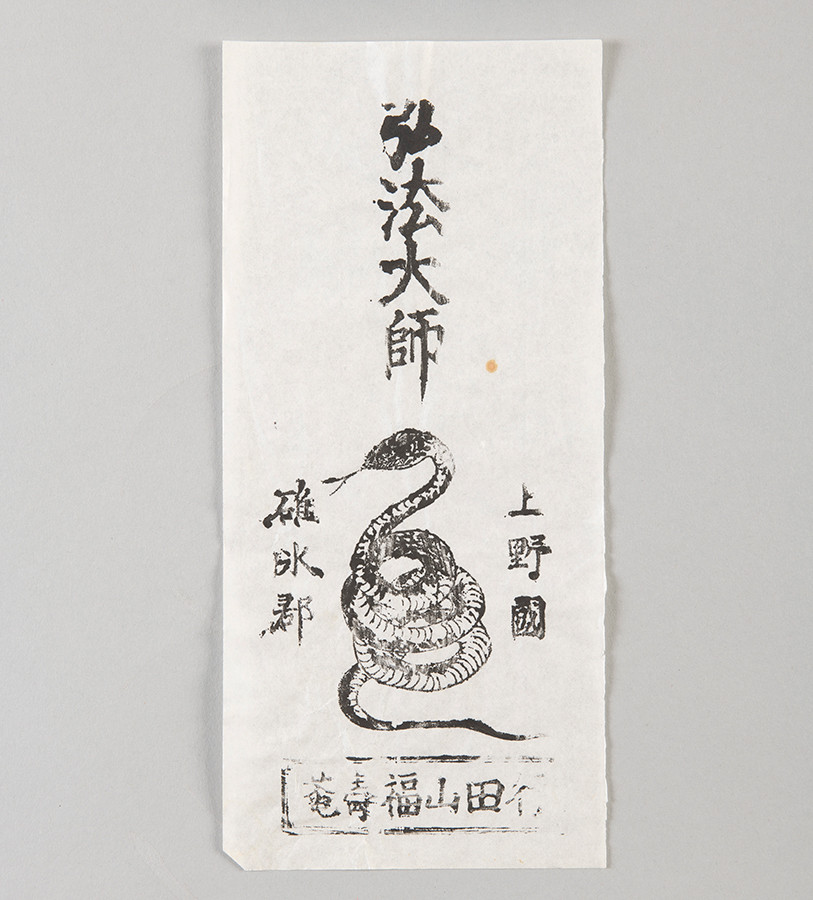 弘法大師
上野國
碓氷郡
田山福壽菴